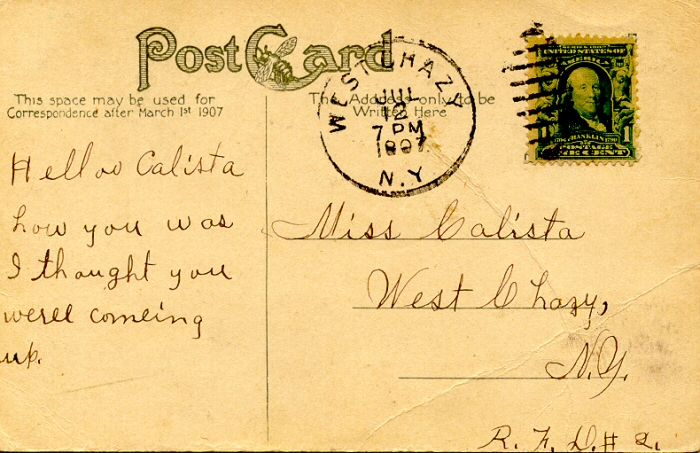 Post Card
This space may be used for
Correspondence after March 1st 1907
The Address only to be
Written Here
WEST CHAZY
JUL
12
7 PM
1907
N.Y
SERIES 1902
UNITED STATES OF
AMERICA
FRANKLIN
1
POSTAGE
ONE CENT
Hellow Calista
how you was
I thought you
werell comeing
up.
Miss Calista
West Chazy,
N.Y.
R. F. D # 2.